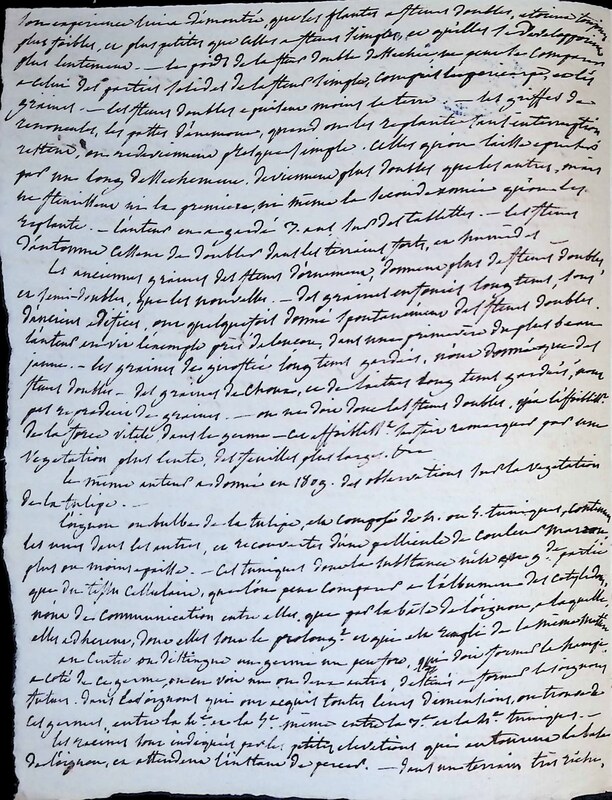 son expérience lui a démontré, que les plantes a fleurs doubles, etoient toujours
plus faibles, et plus petites que celles a fleurs simples, et qu'elles se developpoient
plus lentement. — le poids de la fleur double dessechée, ne peut se comparer
a celui des parties solides de la fleur simple, compris les pericarpes, et les
graines. — les fleurs doubles epuisent moins la terre — les griffes de
renoncule, les pattes d'anemone, quand on les replante sans interruption
restent, ou redeviennent presque simple. celles qu'on laisse
par un long dessechement. deviennent plus doubles que les autres, mais
ne fleurissent ni la premiere, ni même la seconde année qu'on les
replante. — l'auteur en a gardé 7 ans sur des tablettes. — les fleurs
d'automne cessent de doubler dans les terreins forts, et humides
les anciennes graines des fleurs d'ornement, donnent plus de fleurs doubles
et semi-doubles, que les nouvelles. — des graines enfouies long tems, sous
d'anciens edifices, ont quelquefois donné spontanement des fleurs doubles.
l'auteur en vit l'exemple près de dans une primevère du plus beau
jaune. — les graines de giroflée long tems gardées, n'ont donné que des
fleurs doubles — des graines de choux, et de laitues long tems gardées, n'ont
pas reproduit de graines. — on ne doit donc les fleurs doubles, qu'a l'affaiblisst.
de la force vitale dans le germe — cet affaiblisst. se fait remarquer par une
vegetation plus lente, des feuilles plus larges. &c
le même auteur a donné en 1809. des observations sur la vegetation
de la tulipe. —
L'oignon ou bulbe de la tulipe, est composé de 4. ou 5. tuniques, contenues
les unes dans les autres, et recouvertes d'une pellicule de couleur marron,
plus ou moins epaisse. — ces tuniques dont la substance n'est en gde. partie
que du tissu cellulaire, que l'on peut comparer a l'albumen des cotyledons,
n'ont de communication entre elles, que par la base de l'oignon, a laquelle
elles adherent, dont elles sont le prolongt. et qui est remplie de la même matière
au centre on distingue un germe un peu fort, qui doit former la hampe.
a coté de ce germe, on en voit un ou deux autres, destinés a former les oignons
futurs. dans les oignons qui ont acquis toutes leurs dimensions, on trouve
ces germes, entre la 4e. et la 5e. même entre la 3e. et la 4e. tuniques. —
les racines sont indiquées par les petites elevations qui entourent la base
de l'oignon, et attendent l'instant de percer. — dans un terrein très riche,